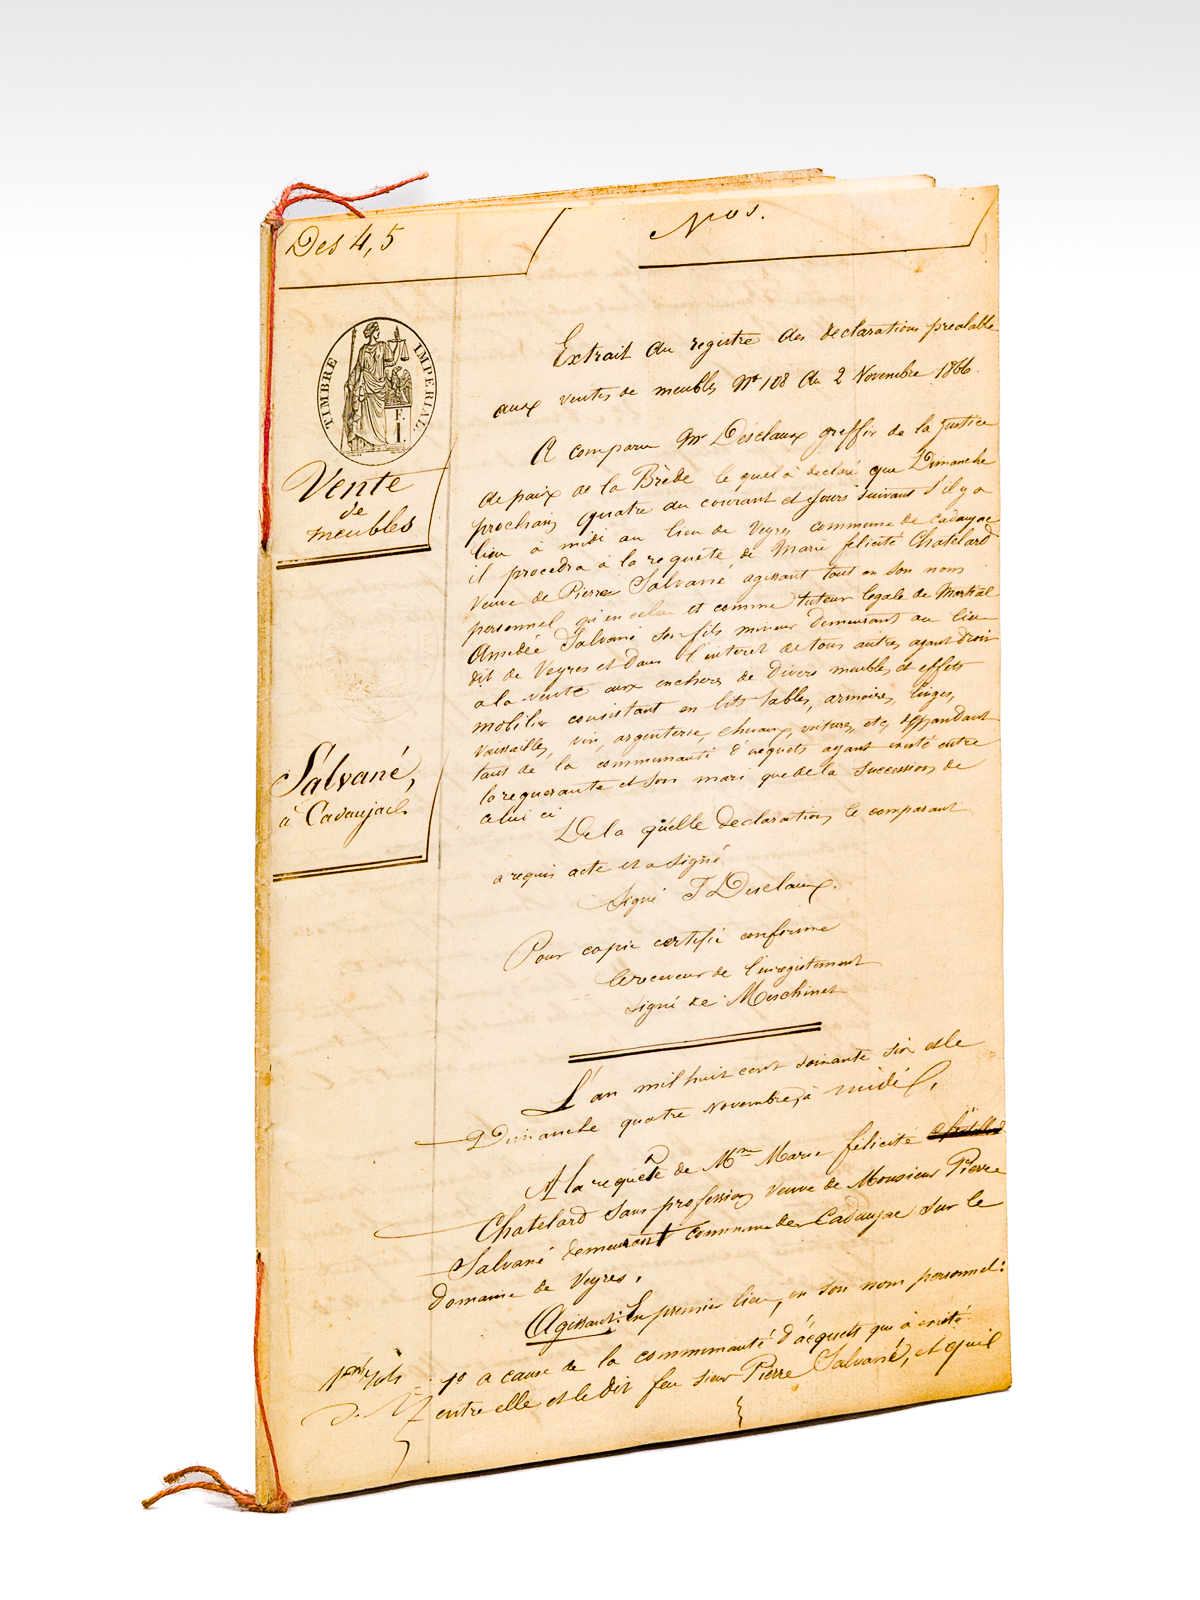 Des 4, 5
Nos.
TIMBRE IMPERIAL.
F.
I.
Vente
de
meubles
Salvané,
à Cadaujac
Extrait du registre des declarations prealable
aux ventes de meubles N° 108 du 2 Novembre 1866.
A comparu Mr Desclaux greffier de la justice
de paix de la Brède le quel à declaré que Dimanche
prochain quatre du courant et jours suivant s'il y a
lieu à midi au lieu de Veyres commune de Cadaujac
il procedra à la requête de Marie felicité Chatelard
Veuve de Pierre Salvané, agissant tout en son nom
personnel qu'en celui et comme tuteur legale de Martial
Amédée Salvané son fils mineur demeurant au lieu
dit de Veyres et dans l'interet de tous autres ayant droit
a la vente aux encheres de divers meubles et effets
mobilier consistant en lits tables, armoires, linges,
Vaissailles, vin, argenterie, chevaux, voitures, etc, dependant
tant de la communauté d'acquets ayant existé entre
la requerante et son mari que de la succession de
celui ci
De la quelle declaration, le comparant
a requis acte et a signé.
Signé J Desclaux.
Pour copie certifié conforme
le receveur de l'enregistrement
Signé de Meschinet
L'an mil huit cent soixante six et le
Dimanche quatre Novembre, à midi,
A la requête de Mme Marie félicité
Chatelard sans profession, veuve de Monsieur Pierre
Salvané demeurant commune de Cadaujac sur le
domaine de Veyres,
Agissant: En premier lieu, en son nom personnel:
1° a cause de la communauté d'acquets qui à existé
entre elle et le dit feu sieur Pierre Salvané, et qu'il